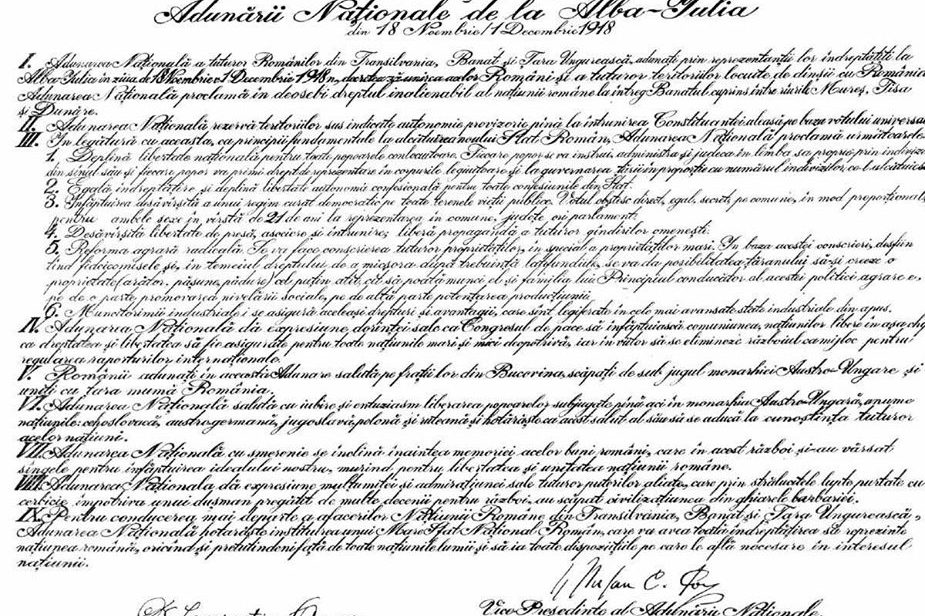 Adunării Naționale de la Alba-Iulia
din 18 Noembrie/1 Decembrie 1918
I. Adunarea Națională a tuturor Românilor din Transilvania, Banat și Țara Ungurească, adunați prin reprezentanții lor îndreptățiți la
Alba-Iulia în ziua de 18 Noembrie/1 Decembrie 1918, decretează unirea acelor Români și a tuturor teritoriilor locuite de dînșii cu România.
Adunarea Națională proclamă în deosebi dreptul inalienabil al națiunii române la întreg Banatul cuprins între rîurile Mureș, Tisa
și Dunăre.
II. Adunarea Națională rezervă teritoriilor sus indicate autonomie provizorie pînă la întrunirea Constituantei aleasă pe baza votului universal
III. În legătură cu aceasta, ca principii fundamentale la alcătuirea noului Stat Român, Adunarea Națională proclamă următoarele:
1. Deplină libertate națională pentru toate popoarele conlocuitoare. Fiecare popor se va instrui, administra și judeca în limba sa proprie prin indivizi
din sînul său și fiecare popor va primi drept de reprezentare în corpurile legiuitoare și la guvernarea țării în proporție cu numărul indivizilor ce-l alcătuiesc
2. Egală îndreptățire și deplină libertate autonomă confesională pentru toate confesiunile din Stat.
3. Înfăptuirea desăvîrșită a unui regim curat democratic pe toate terenele vieții publice. Votul obștesc, direct, egal, secret, pe comune, în mod proporțional,
pentru ambele sexe în vîrstă de 21 de ani la reprezentarea în comune, județe ori parlament.
4. Desăvîrșită libertate de presă, asociere și întrunire; liberă propagandă a tuturor gîndirilor omenești.
5. Reforma agrară radicală. Se va face conscrierea tuturor proprietăților, în special a proprietăților mari. În baza acestei conscrieri, desființ
înd fideicomisele și, în temeiul dreptului de a micșora după trebuință latifundiile, se va da posibilitatea țăranului să-și creeze o
proprietate (arător, pășune, pădure) cel puțin atît cît să poată munci el și familia lui. Principiul conducător al acestei politici agrare e,
pe de o parte, promovarea nivelării sociale, pe de altă parte potențarea producțiunii.
6. Muncitorimii industriale i se asigură aceleași drepturi și avantagii, care sînt legiferate în cele mai avansate state industriale din apus.
IV. Adunarea Națională dă expresiune dorinței sale ca Congresul de pace să înfăptuiască comuniunea națiunilor libere în așa chip
ca dreptatea și libertatea să fie asigurate pentru toate națiunile mari și mici deopotrivă, iar în viitor să se elimineze războiul ca mijloc pentru
regularea raporturilor internaționale.
V. Românii adunați în această Adunare salută pe frații lor din Bucovina, scăpați de sub jugul monarhiei Austro-Ungare și
uniți cu țara mumă România.
VI. Adunarea Națională salută cu iubire și entuziasm liberarea popoarelor subjugate pînă aci în monarhia Austro-Ungară, anume
națiunile: cehoslovacă, austrogermană, jugoslavă, polonă și ruteană și hotărăște ca acest salut al său să se aducă la cunoștința tuturor
acelor națiuni.
VII. Adunarea Națională cu smerenie se închină înaintea memoriei acelor buni români, care în acest război și-au vărsat
sîngele pentru înfăptuirea idealului nostru, murind pentru libertatea și unitatea națiunii române.
VIII. Adunarea Națională dă expresiune mulțumitei și admirațiunei sale tuturor puterilor aliate, care prin strălucitele lupte purtate cu
cerbicie împotriva unui dușman pregătit de multe decenii pentru război, au scăpat civilizațiunea din ghiarele barbariei.
IX. Pentru conducerea mai departe a afacerilor Națiunii Române din Transilvania, Banat și Țara Ungurească,
Adunarea Națională hotărăște instituirea unui Mare Sfat Național Român, care va avea toată îndreptățirea să reprezinte
națiunea română, oricînd și pretutindeni față de toate națiunile lumii și să ia toate dispozițiile pe care le află necesare în interesul
națiunii.
Vice Președinte al Adunării Naționale